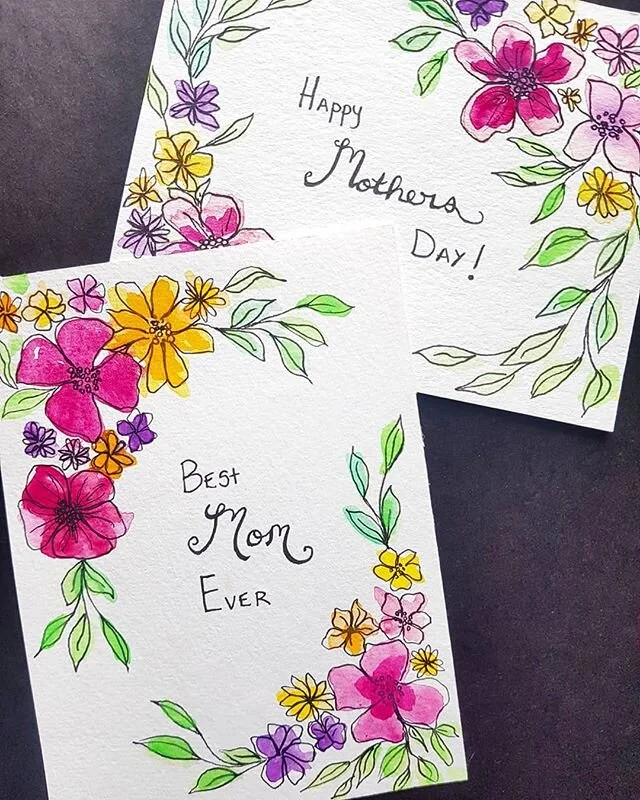 Happy
Mothers
Day!
Best
Mom
Ever